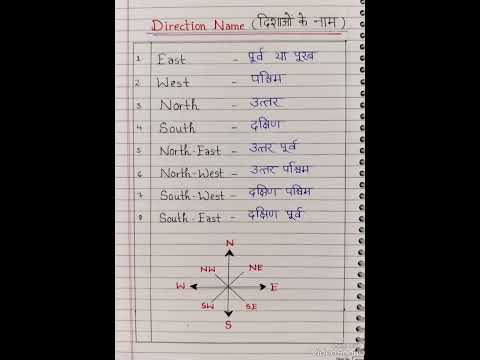 Direction Name (दिशाओ के नाम)
1 East - पूर्व या पूरब
2 West - पश्चिम
3 North - उत्तर
4 South - दक्षिण
5 North-East - उत्तर पूर्व
6 North-West - उत्तर पश्चिम
7 South-West - दक्षिण पश्चिम
8 South-East - दक्षिण पूर्व
N
NW NE
W E
SW SE
S